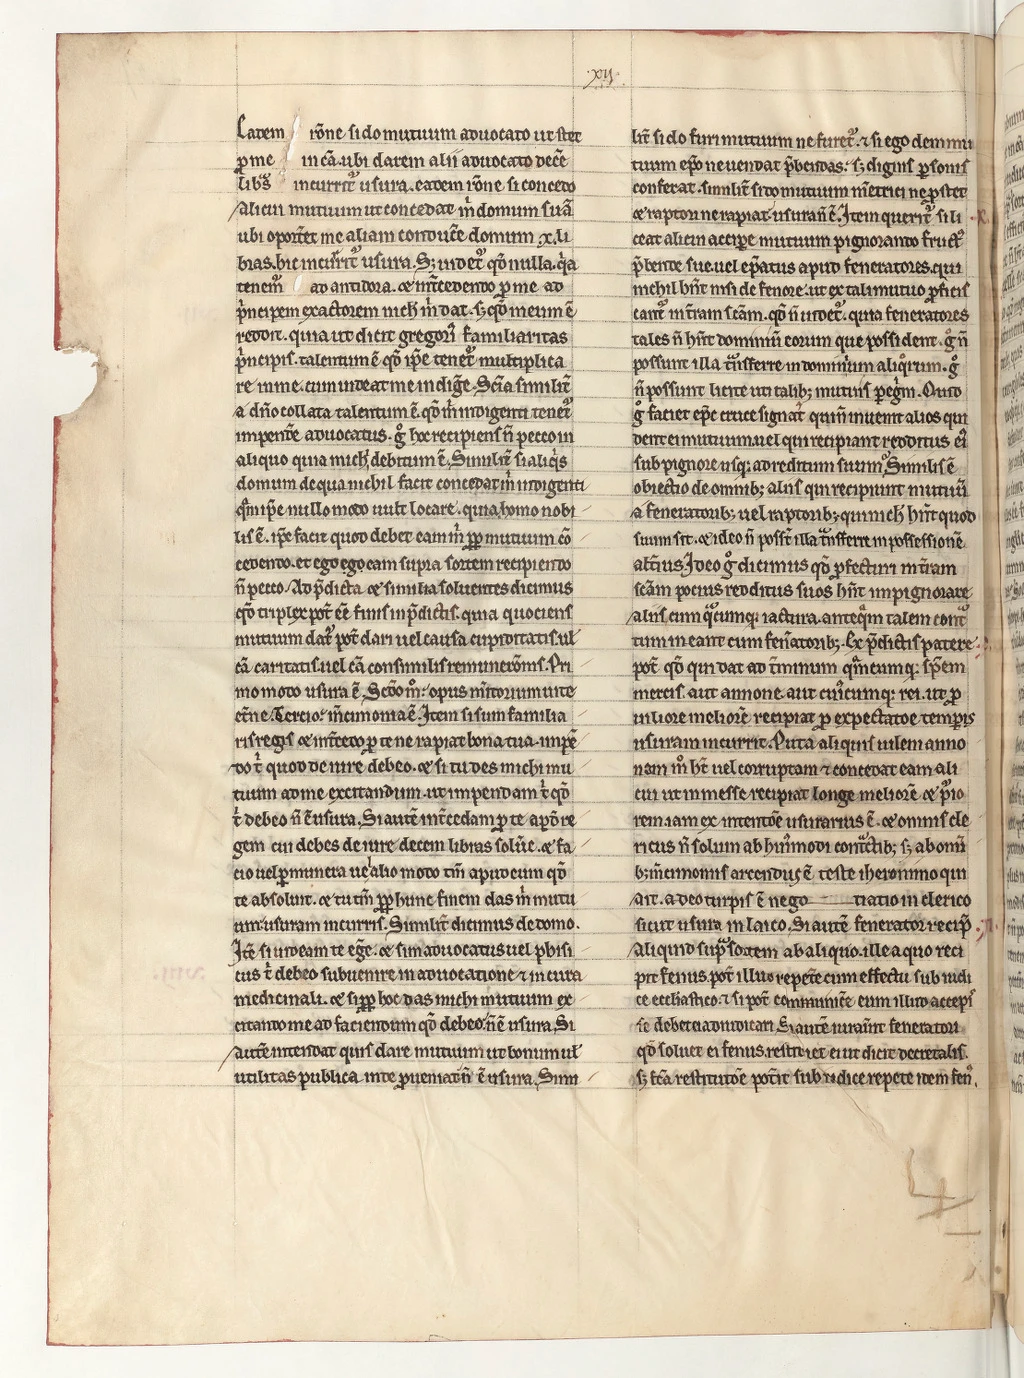 .xij.
Eadem rõne si do mutuum aduocato ut stet
ꝑ me in cã. ubi darem alii aduocato decẽ
libᵃs incurrit᷑ usura. eadem rõne si concedo
alicui mutuum ut concedat m̃ domum suã
ubi oportet me aliam conducẽ domum .x. li
bras. hic incurrit᷑ usura. Sꝫ uidet᷑ qđ nulla. q̃a
tenem᷑ ad antidora. ⁊ int̃cedendo ꝑ me ad
pͥncipem exactorem nichͥ m̃ dat. sꝫ qđ meum ẽ
reddit. quia ut dicit gregoriꝰ familiaritas
pͥncipis. talentum ẽ qđ ip̃e tenet᷑ multiplica
re in me. cum uideat me indigẽ. Sciã similit̃
a dño collata talentum ẽ. qđ m̃ indigenti tenet᷑
impendẽ aduocatus. gͦ hoc recipiens ñ pecco in
aliquo quia michͥ debitum ẽ. Similit̃ si aliqͥs
domum de qua nichil facit concedat m̃ indigenti
qͣm ip̃e nullo modo uult locare. quia homo nobi
lis ẽ. ip̃e facit quod debet eam m̃ ꝓpͭ mutuum cõ
cedendo. et ego ego eam supra sortem recipiendo
ñ pecco. Ad p̃dicta ⁊ similia soluentes dicimus
qđ triplex pot̃ eẽ finis in p̃dictis. quia quociens
mutuum dat᷑ pot̃ dari uel causa cupiditatis ul̃
cã caritatis. uel cã consimilis remuneratõnis. Pri
mo modo usura ẽ. Scđo mͦ. opus m̃itorium uite
et̃ne. Tercioꝰ m̃cimonia ẽ. Item si sum familia
ris regis ⁊ int̃cedo ꝑ te ne rapiat bona tua. impẽ
do t̃ quod de iure debeo. ⁊ si tu des michi mu
tuum ad me excitandum. ut impendam t̃ qđ
t̃ debeo ñ ẽ usura. Si autẽ int̃cedam ꝑ te apđ re
gem cui debes de iure decem libras soluẽ. ⁊ fa
cio uel ꝑ munera uel alio modo tm̃ apud eum qđ
te absoluit. ⁊ tu tm̃ ꝓpͭ hunc finem das m̃ mutu
um. usuram incurris. Similit̃ dicimus de domo.
Itẽ si uideam te egẽ. ⁊ sim aduocatus uel phisi
cus t̃ debeo subuenire in aduocatione ⁊ in cura
medicinali. ⁊ si ꝓpͭ hoc das michi mutuum ex
citando me ad faciendum qđ debeo. ñ ẽ usura. Si
autẽ intendat quis dare mutuum ut bonum ul̃
utilitas publica inde ꝓueniat ñ ẽ usura. Simi
lit̃ si do furi mutuum ne furet᷑. ⁊ si ego dem mu
tuum ep̃o ne uendat p̃bendas. sꝫ dignis ꝑsonis
conferat. similit̃ si do mutuum m̃etrici ne ꝓstet
⁊ raptori ne rapiat. usura ñ ẽ. Item querit᷑ si li
ceat alicui accipe mutuum pignorando fructꝰ
p̃bende sue. uel ep̃atus apud feneratores. qui
nichil hñt nisi de fenore. ut ex tali mutuo ꝓficis
cat᷑ in t̃ram sc̃am. qđ ñ uidet᷑. quia feneratores
tales ñ hñt dominiũ eorum que possident. gͦ ñ
possunt illa tñsferre in dominium aliqͦrum. gͦ
ñ possunt licite uti talibꝫ mutuis peregͥni. Quid
gͦ faciet ep̃c cruce signatꝰ qui ñ inuenit alios qui
dent ei mutuum. uel qui recipiant redditus eiꝰ
sub pignore usqꝫ ad reditum suum. Similis ẽ
obiectio de omnibꝫ aliis qui recipiunt mutuũ
a feneratoribꝫ uel raptoribꝫ qui nichͥ hñt quod
suum sit. ⁊ ideo ñ possͭ illa tñsferre in possessionẽ
alt̃ius. Ideo gͦ dicimus qđ ꝓfecturi in t̃ram
sc̃am pocius redditus suos hñt impignorare
aliis cum qͣcumqꝫ iactura. anteqͣm talem contͣc
tum ineant cum feñatoribꝫ. Ex p̃dictis patere
pot̃ qđ qui dat ad t̃minum qͣmcumqꝫ sp̃em
mercis. aut annone aut cuiͥcumqꝫ rei. ut ꝓ
uiliore meliorẽ recipiat ꝓ expectatoẽ temꝑis
usuram incurrit. Puta aliquis uilem anno
nam m̊ hͭ uel corruptam ⁊ concedat eam ali
cui ut in messe recipiat longe meliorẽ ⁊ pͥcio
rem. iam ex intentõe usurarius ẽ. ⁊ omnis cle
ricus ñ solum ab huiꝰmodi contͣctibꝫ sꝫ ab omi
bꝫ m̃cimoniis arcendus ẽ teste iheronimo qui
ait. adeo turpis ẽ nego tiatio in clerico
sicut usura in laico. Si autẽ fenerator recipͭ
aliquid supͣ sortem ab aliquo. ille a quo reci
pit fenus. pot̃ illud repetẽ cum effectu sub iudi
ce ecclˀiastico. ⁊ si pot̃ conuincẽ eum illud accepis
se debet ei adiudicari. Si autẽ iurauit feneratori
qđ soluet ei fenus. restituet ei ut dicit decretalis.
sꝫ fc̃a restitutõe potͥt sub iudice repetẽ idem fenꝰ.